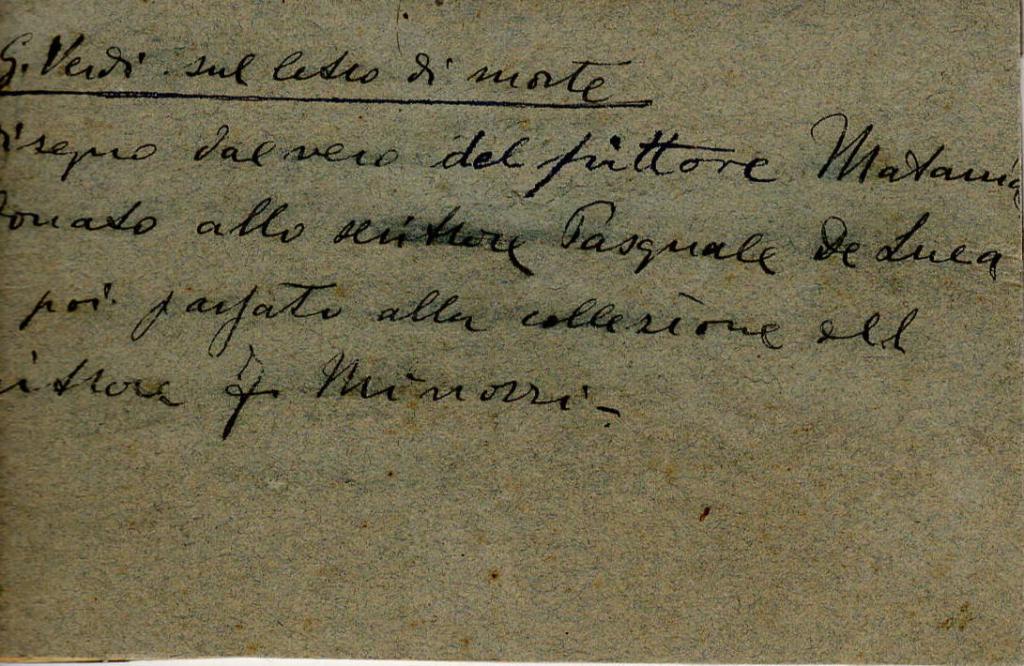 G. Verdi sul letto di morte
disegno dal vero del pittore Matania
donato allo scrittore Pasquale De Luca
poi passato alla collezione del
pittore F. Minozzi -